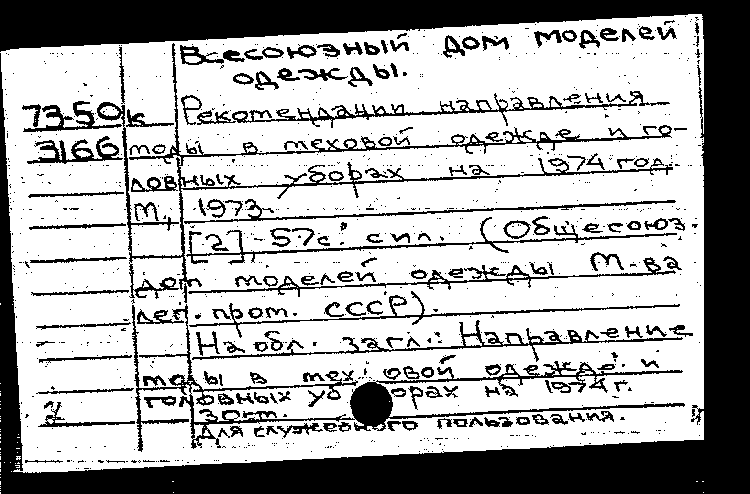 Всесоюзный дом моделей
одежды.
73-50к Рекомендации направления
3166 моды в меховой одежде и го-
ловных уборах на 1974 год.
М., 1973.
[2], 57с. с ил. (Общесоюз.
дом моделей одежды М-ва
лег. пром. СССР).
На обл. загл.: Направление
моды в мех овой одежде и
головных уб орах на 1974г.
30кт.
Для служебного пользования.